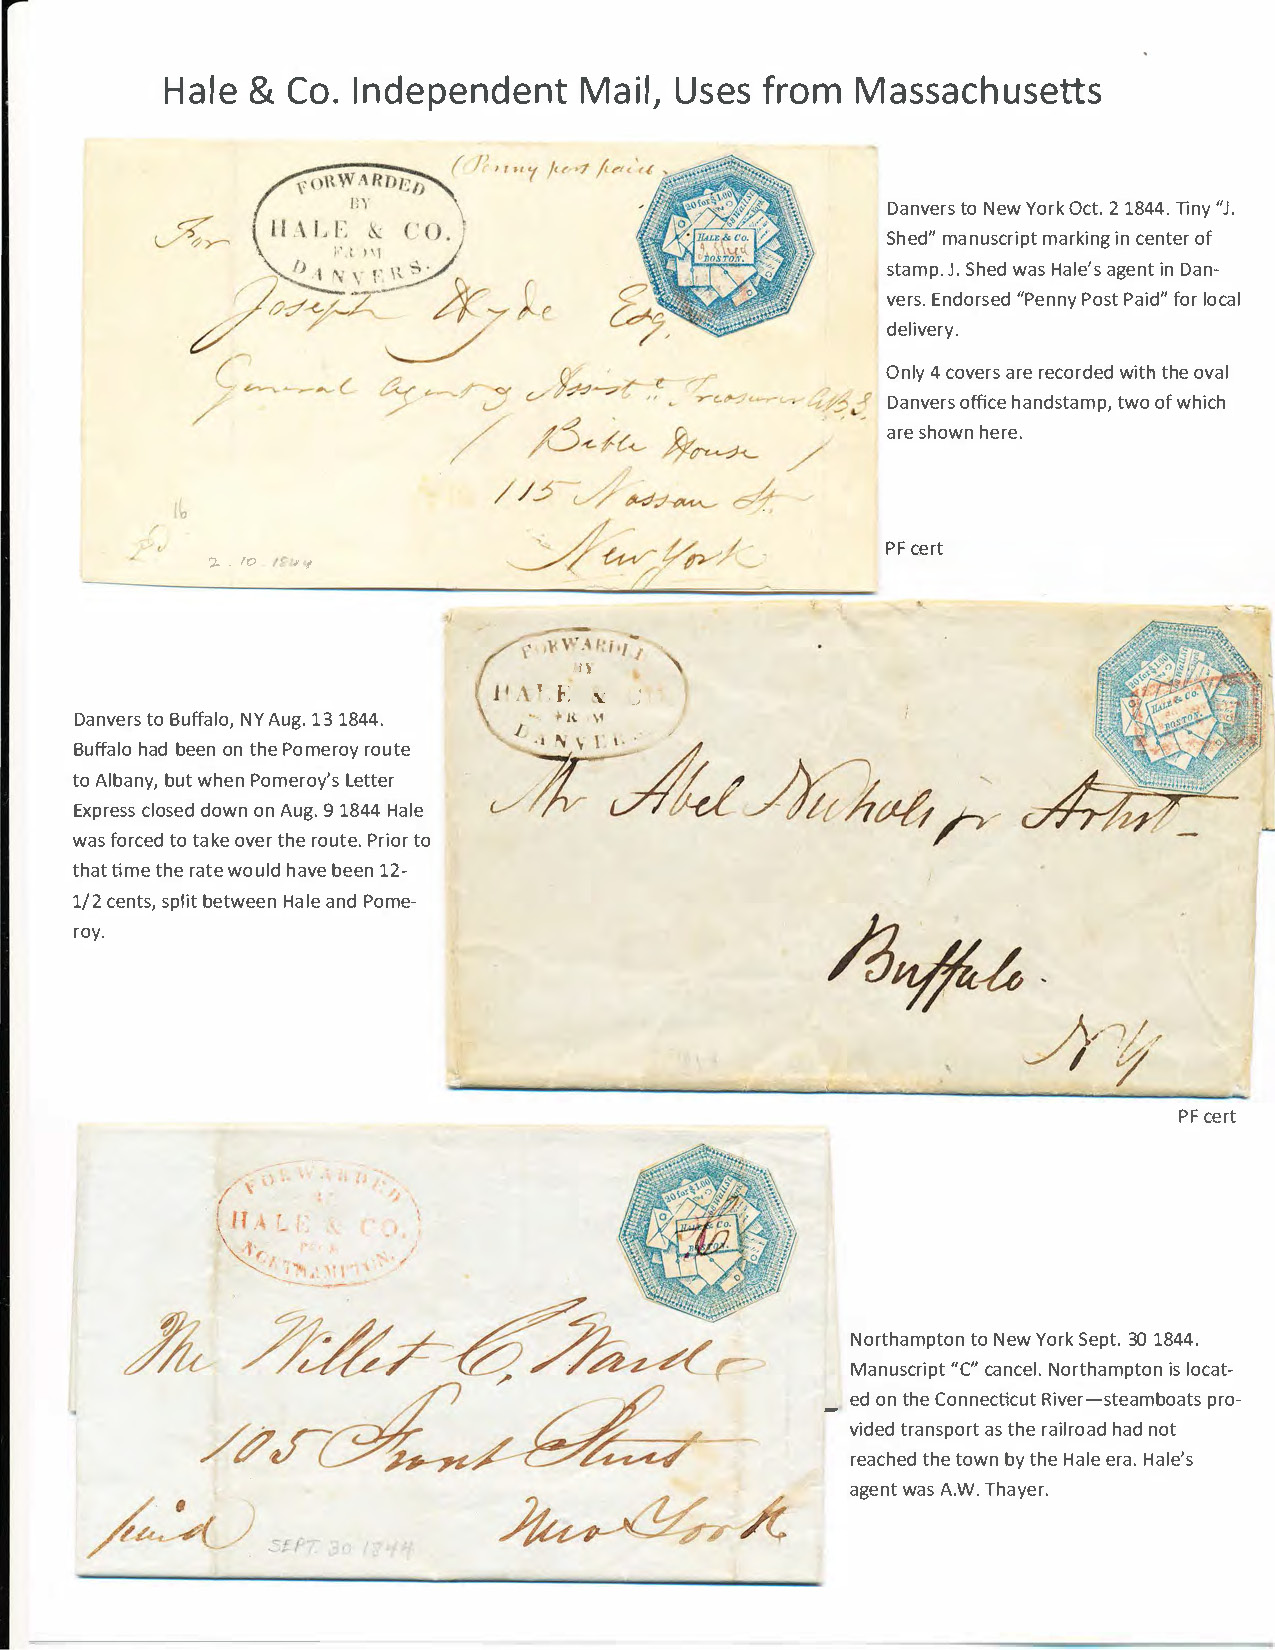 Hale & Co. Independent Mail, Uses from Massachusetts
(Penny post paid
FORWARDED
BY
HALE & CO.
FROM
DANVERS.
20 for $1.00
HALE & Co.
J. Shed
BOSTON.
For
Joseph Hyde Esq.
General Agent & Assist.t Treasurer A.B.S.
/ Bible House /
115 Nassau St.
New York
16
2 . 10 . 1844
Danvers to New York Oct. 2 1844. Tiny “J.
Shed” manuscript marking in center of
stamp. J. Shed was Hale’s agent in Dan-
vers. Endorsed “Penny Post Paid” for local
delivery.
Only 4 covers are recorded with the oval
Danvers office handstamp, two of which
are shown here.
PF cert
FORWARDED
BY
HALE & CO.
FROM
DANVERS.
20 for $1.00
HALE & Co.
BOSTON.
Mr Abel Nichols jr Artist
Buffalo.
NY
Danvers to Buffalo, NY Aug. 13 1844.
Buffalo had been on the Pomeroy route
to Albany, but when Pomeroy’s Letter
Express closed down on Aug. 9 1844 Hale
was forced to take over the route. Prior to
that time the rate would have been 12-
1/2 cents, split between Hale and Pome-
roy.
PF cert
FORWARDED
BY
HALE & CO.
FROM
NORTHAMPTON.
20 for $1.00
HALE & Co.
BOSTON.
Mr Willet C. Ward
105 Front Street
New York
paid
SEPT. 30 1844
Northampton to New York Sept. 30 1844.
Manuscript “C” cancel. Northampton is locat-
ed on the Connecticut River—steamboats pro-
vided transport as the railroad had not
reached the town by the Hale era. Hale’s
agent was A.W. Thayer.